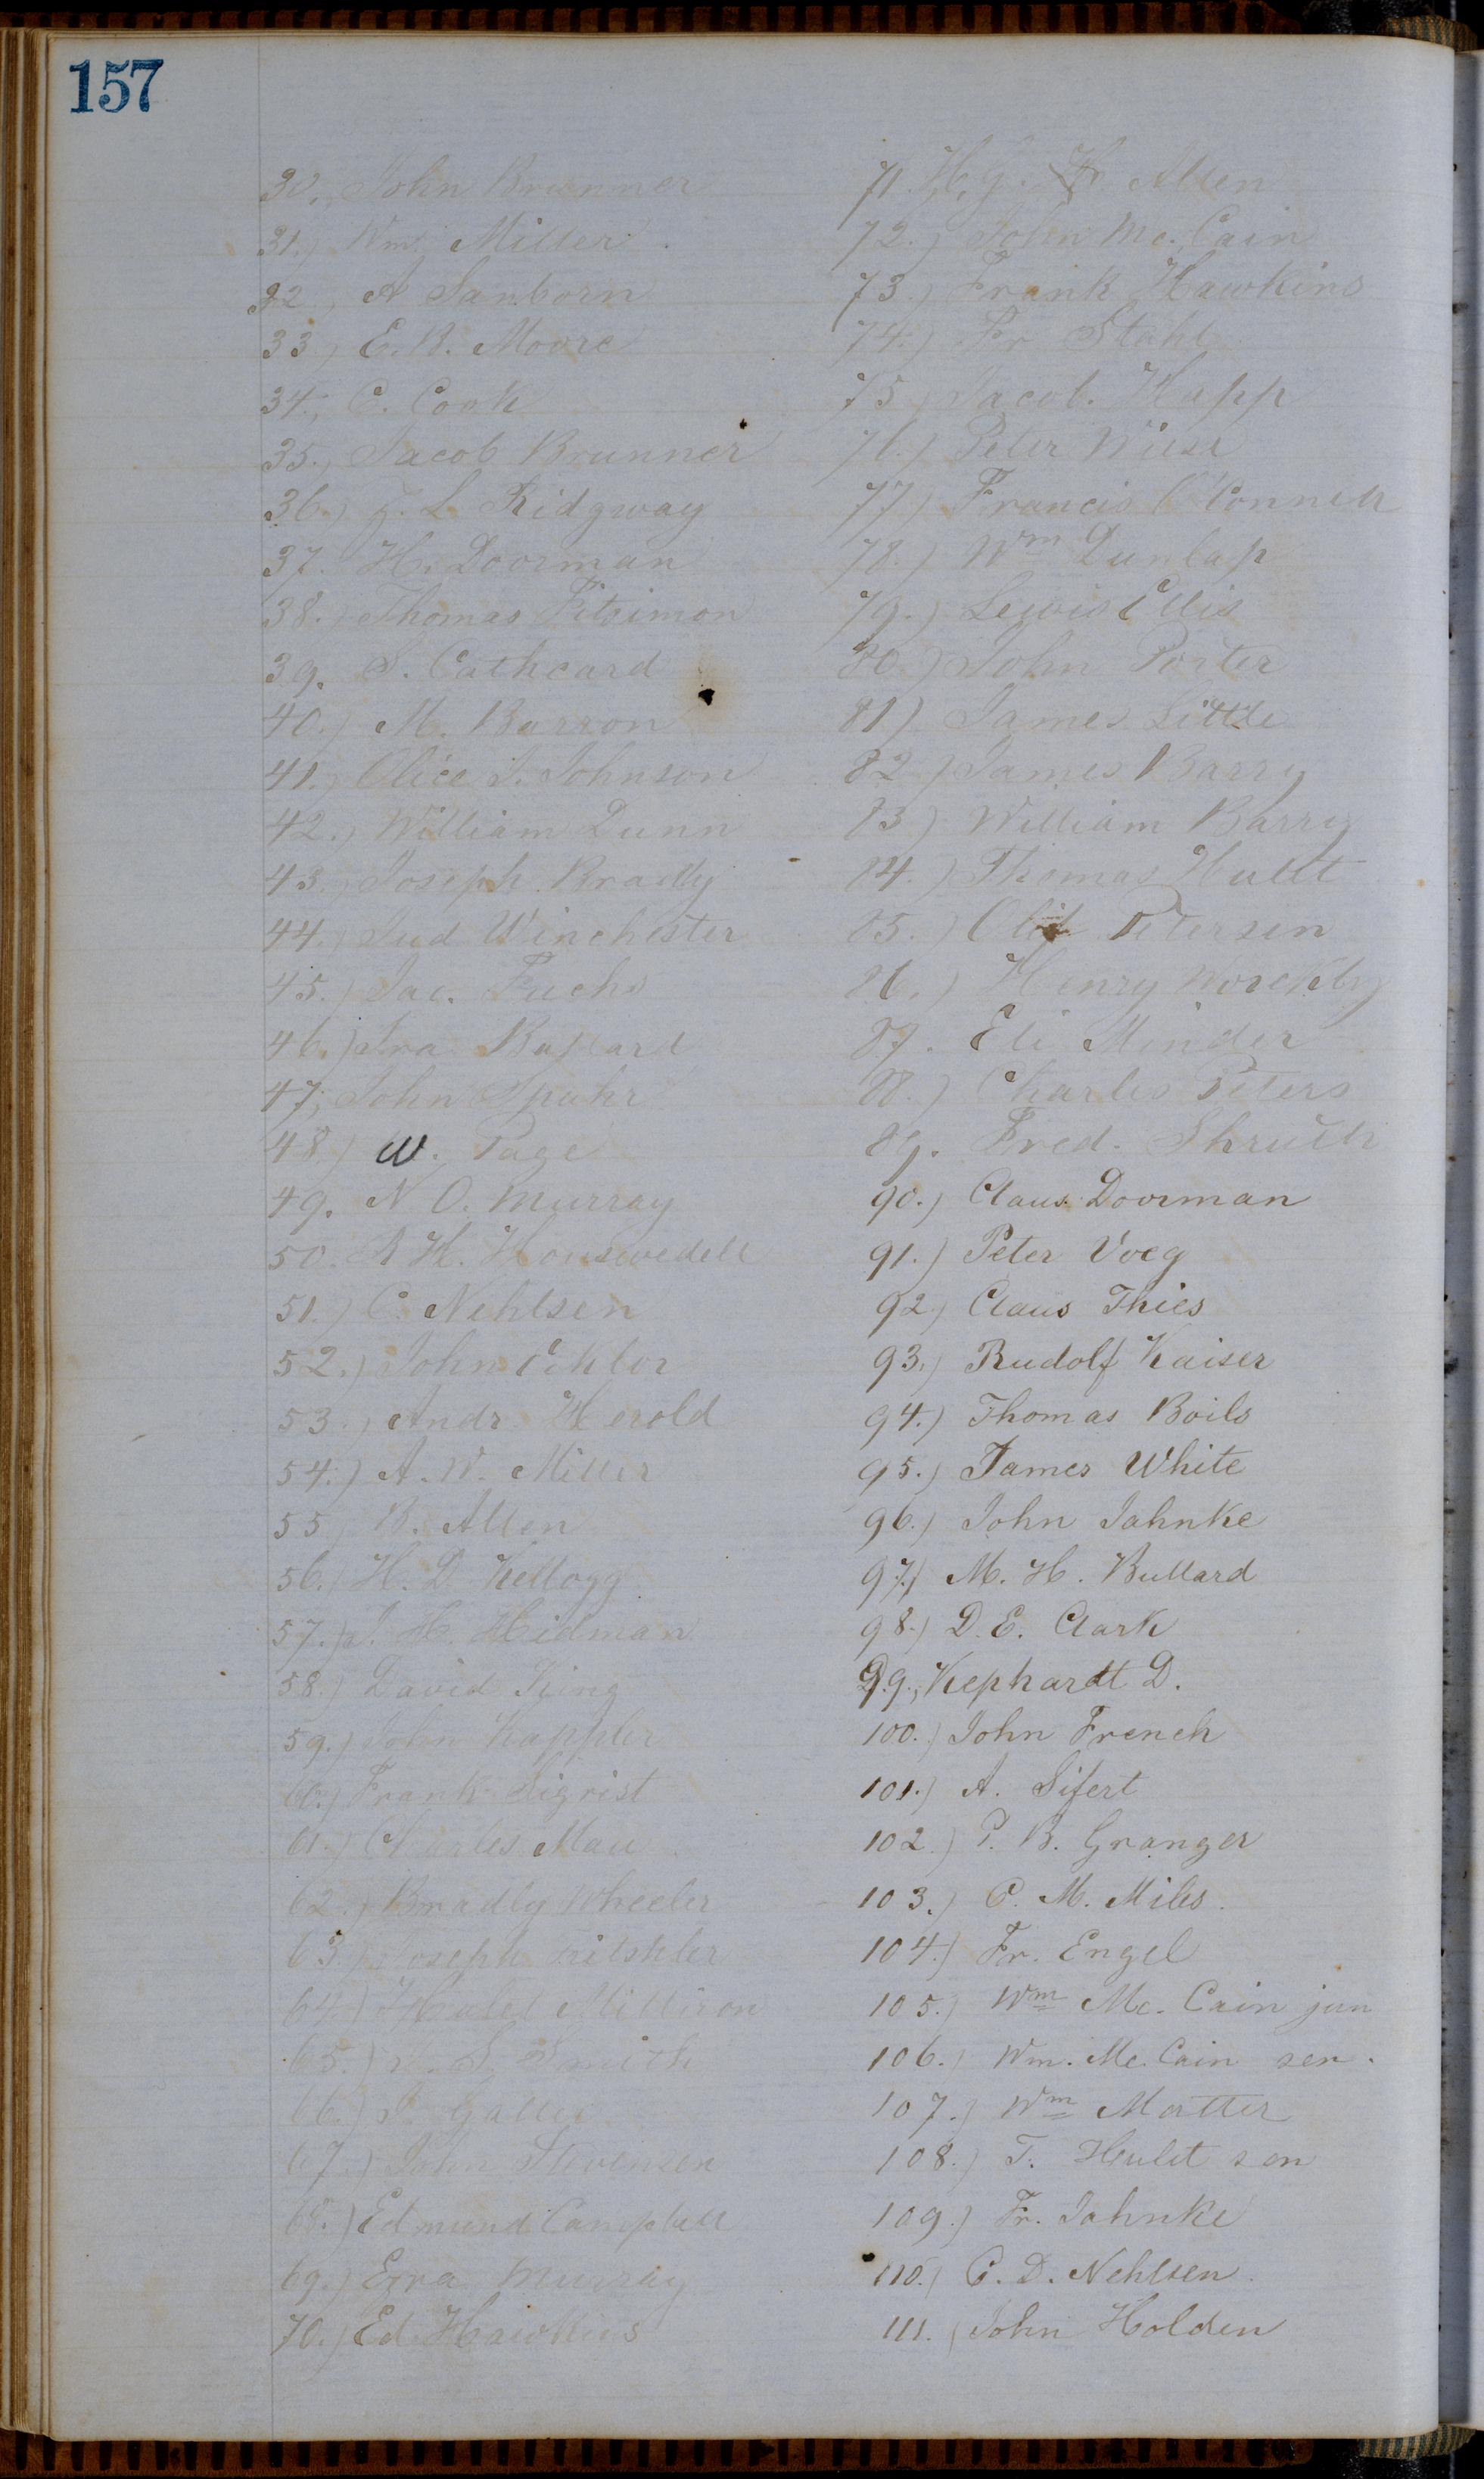 157
30., John Brunner
31.) Wm. Miller.
32., A Sanborn
33., E. B. Moore
34., C. Cook
35., Jacob Brunner
36.) J. L. Ridgway
37. H. Doorman
38.) Thomas Fitsimon
39. S. Cathcard
40.) M. Barron
41.) Alice J. Johnson
42.) William Dunn
43.) Joseph Bradly
44.) Jud Winchester
45.) Jac. Fuchs
46.) Ira Bullard
47., John Spahr
48.) W. Page
49. N O. Murray
50. A K. Houswedell
51.) C. Nehlsen
52.) John Eckler
53., Andr. Herold
54.) A. W. Miller
55) B. Allen
56.) H. D. Kellogg
57.) J. H. Hidman
58.) David King
59.) John Kappler
60.) Frank Sigrist
61.) Charles Mau
62.) Bradly Wheeler
63.) Joseph
64.) Milliron
65.) S Smith
66.)
67.) John Stevensen
68.) Edmund Campbell
69.) Ezra Murray
70.) Ed. Hawkins
71. H. G. Allen
72.) John Mc. Cain
73.) Frank Hawkins
74.) Fr Stahl
75.) Jacob. Happ
76.) Peter Wiese
77.) Francis O'Connell
78.) Wm Dunlap
79.) Lewis Ellis
80.) John Porter
81) James Little
82.) James Barry
83.) William Barry
84.) Thomas Hullt
85.) Petersen
86.) Henry
87. Eli Minder
88.) Charles Peters
89. Fred.
90.) Claus Doorman
91.) Peter Voeg
92.) Claus Thies
93.) Rudolf Kaiser
94.) Thomas Boils
95.) James White
96.) John Jahnke
97.) M. H. Bullard
98.) D. E. Clark
99., Kephardt D.
100.) John French
101.) A. Sifert
102.) P. B. Granger
103.) C. M. Miles.
104.) Fr. Engel
105.) Wm Mc. Cain jun
106.) Wm. Mc. Cain sen.
107.) Wm Matter
108.) T. Hulet sen
109.) Fr. Jahnke
110.) C. D. Nehlsen.
111. John Holden